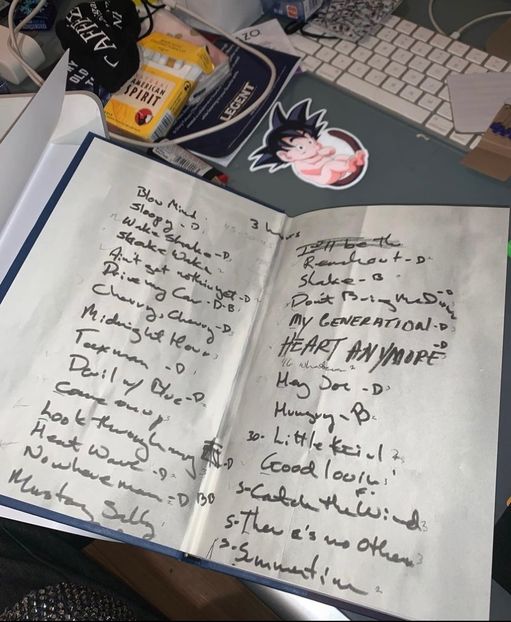 AMERICAN
SPIRIT
LEGENT
3 hours
Blow Mind
Sloopy - D
Wake Shake - D
Shake Wake
Ain't got nothin yet - D
Drive my Car - D-B
Cherry, Cherry - D
Midnight Hour
Taxman - D
Devil w/ Blue - D
Come on up
Look through my - D
Heat Wave - D
Nowhere man = D
Mustang Sally
I'll be th
Reachout - D
Shake - B
Don't Bring Me Down - D
MY GENERATION - D
HEART ANYMORE - D
Hey Joe - D
Hungry - B
Little Girl
Good lovin
S - Catch the Wind
S - There's no Other
S - Summertime